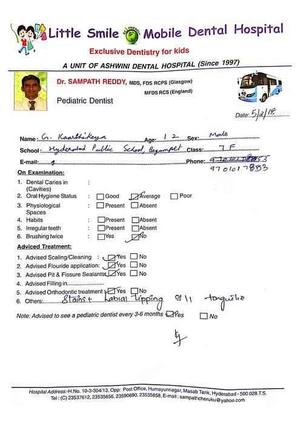 Little Smile Mobile Dental Hospital
Exclusive Dentistry for kids
A UNIT OF ASHWINI DENTAL HOSPITAL (Since 1997)
Dr. SAMPATH REDDY, MDS, FDS RCPS (Glasgow)
MFDS RCS (England)
Pediatric Dentist
Date:
Name: G. Karthikeya Age: 12 Sex: Male
School: Hyderabad Public School, Begumpet Class: 7 F
E-mail:
On Examination:
1. Dental Caries in :
(Cavities)
2. Oral Hygiene Status : Good Average Poor
3. Physiological : Present Absent
Spaces
4. Habits : Present Absent
5. Irregular teeth : Present Absent
6. Brushing twice : Yes No
Adviced Treatment:
1. Advised Scaling/Cleaning : Yes No
2. Advised Flouride application: Yes No
3. Advised Pit & Fissure Sealants Yes No
4. Advised Filling in
5. Advised Orthodontic treatment Yes No
6. Others: Stains + Labial tipping of 11
Note: Advised to see a pediatric dentist every 3-6 months Yes No
Hospital Address: H.No. 10-3-304/13, Opp: Post Office, Humayunnagar, Masab Tank, Hyderabad - 500 028.T.S.
Tel: (C) 23537612, 23535656, 23590690, 23535858, E-mail: sampathcheruku@yahoo.com